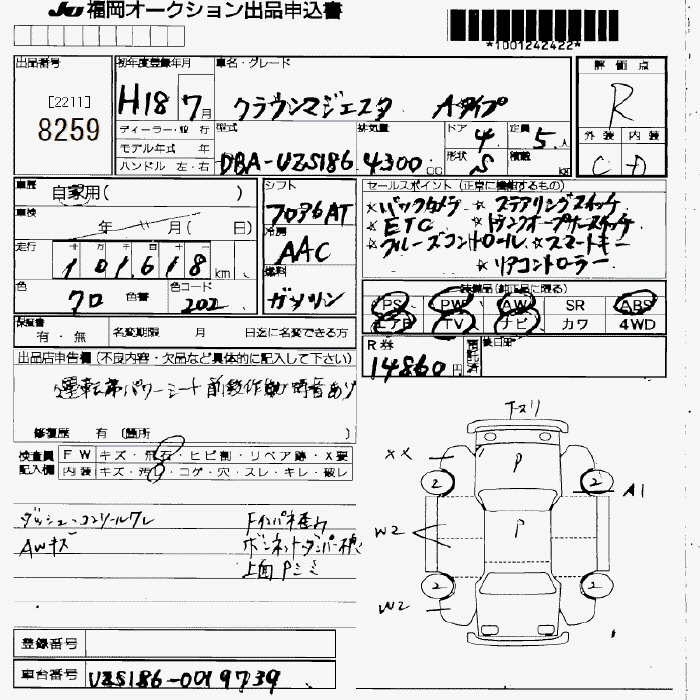 JU 福岡オークション出品申込書
*1001242422*
出品番号
[2211]
8259
初年度登録年月
H18 7月
車名・グレード
クラウンマジェスタ Aタイプ
評価点
R
外装 内装
C D
モデル年式 年
ハンドル 左・右
型式
DBA-UZS186
排気量
4300 CC
ドア 4
定員 5人
形状 S
積載 kg
車歴
自家用( )
車検
年 月( 日)
走行
十 万 千 百 十 一
1 0 1 6 1 8 km
色
クロ
色番
色コード
202
シフト
フロア6AT
冷房
AAC
燃料
ガソリン
セールスポイント(正常に機能するもの)
☆バックカメラ ☆ステアリングスイッチ
☆ETC ☆トランクオープナースイッチ
☆クルーズコントロール ☆スマートキー
☆リアコントローラー
装備品(純正品に限る)
PS PW AW SR ABS
エアB TV ナビ カワ 4WD
保証書
有・無
名変期限 月 日迄に名変できる方
R券
14860円
後日
出品店申告欄(不良内容・欠品など具体的に記入して下さい)
運転席パワーシート前後作動時音あり
修復歴 有 (箇所 )
検査員
記入欄
FW キズ・飛石・ヒビ割・リペア跡・X要
内装 キズ・汚レ・コゲ・穴・スレ・キレ・破レ
ダッシュ・コンソールワレ
AWキズ
Fインパネ
ボンネット・ダンパー
上面Pシミ
P
XX
2
2
A1
W2
P
2
2
W2
登録番号
車台番号
UZS186-0019739